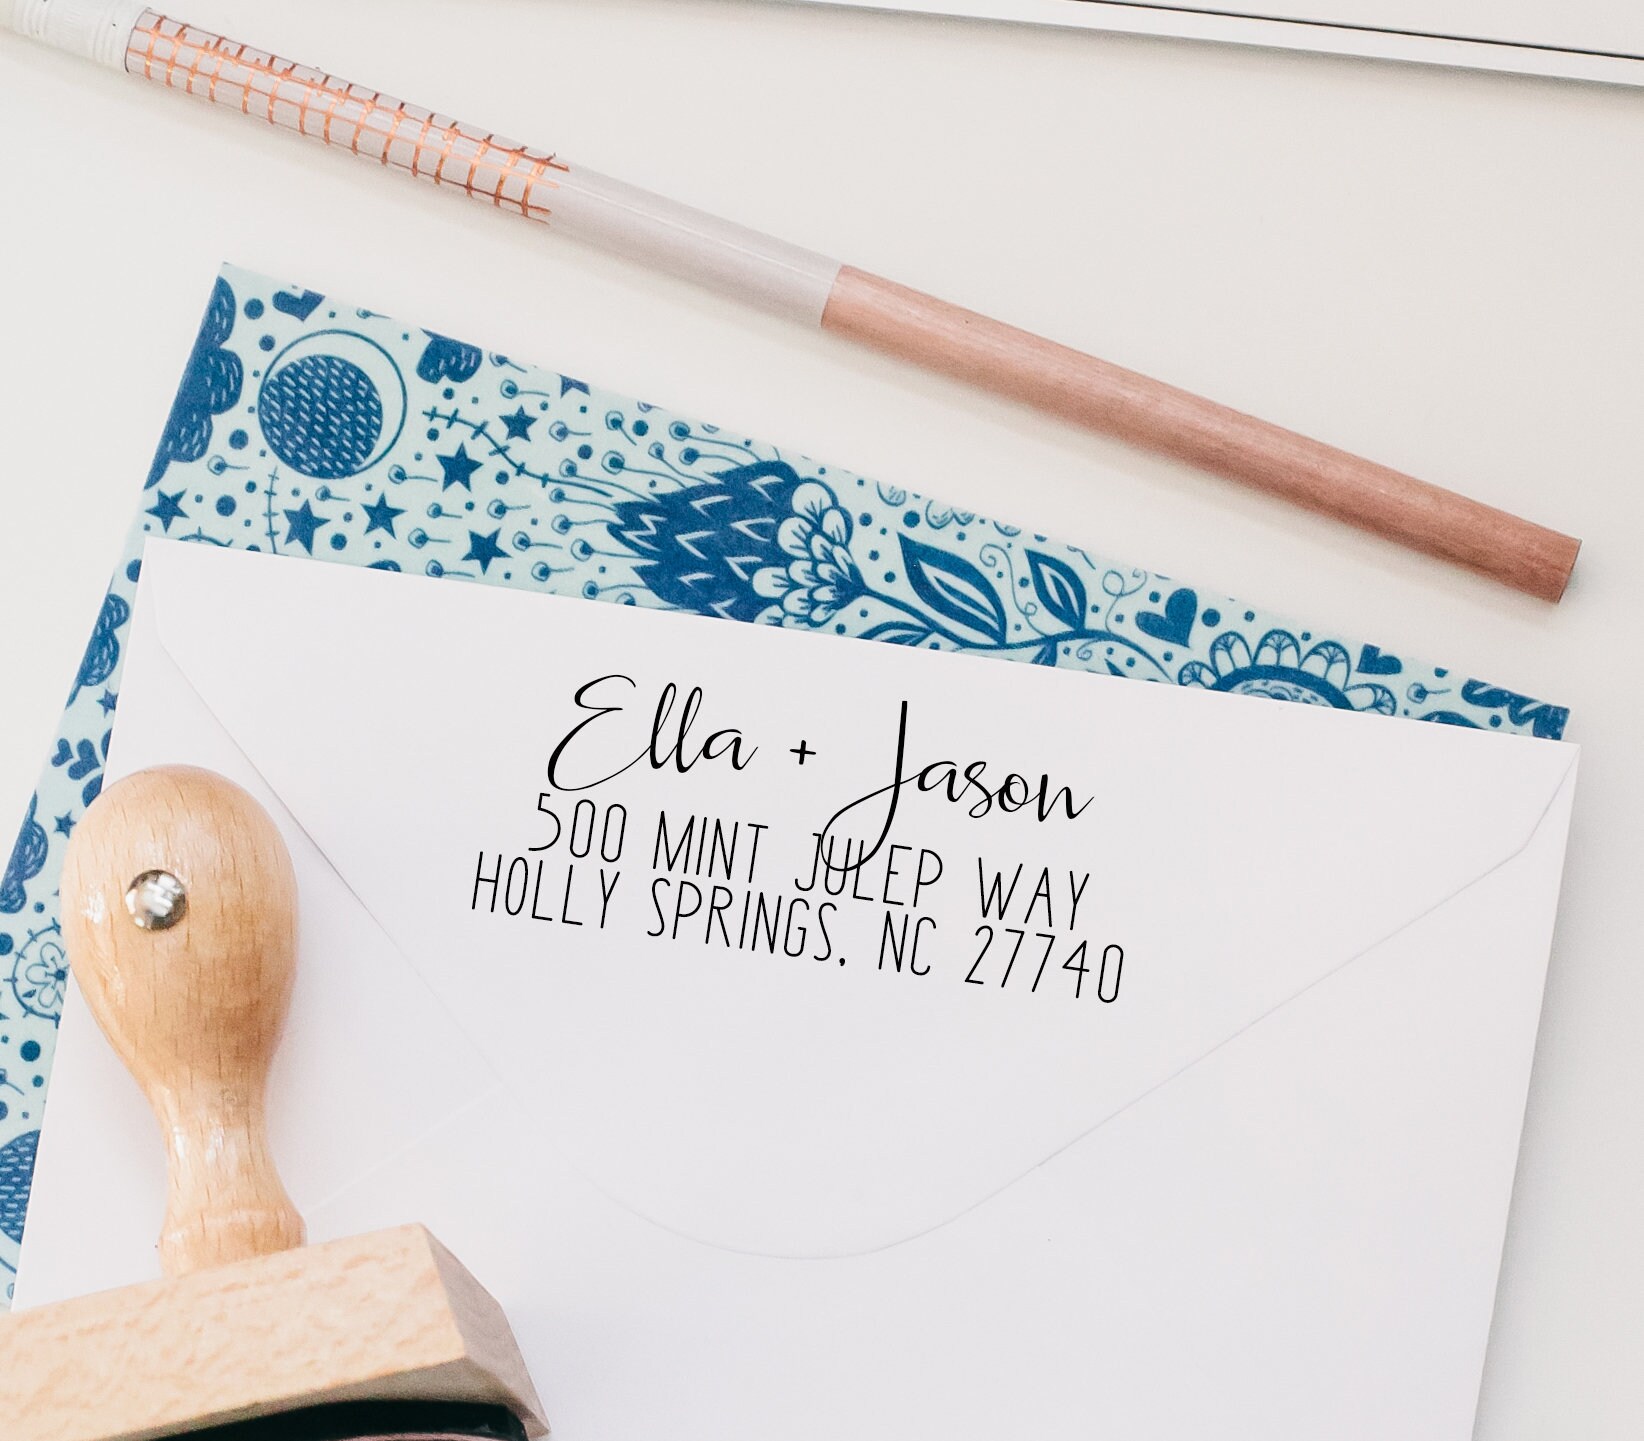 Ella + Jason
500 MINT JULEP WAY
HOLLY SPRINGS, NC 27740